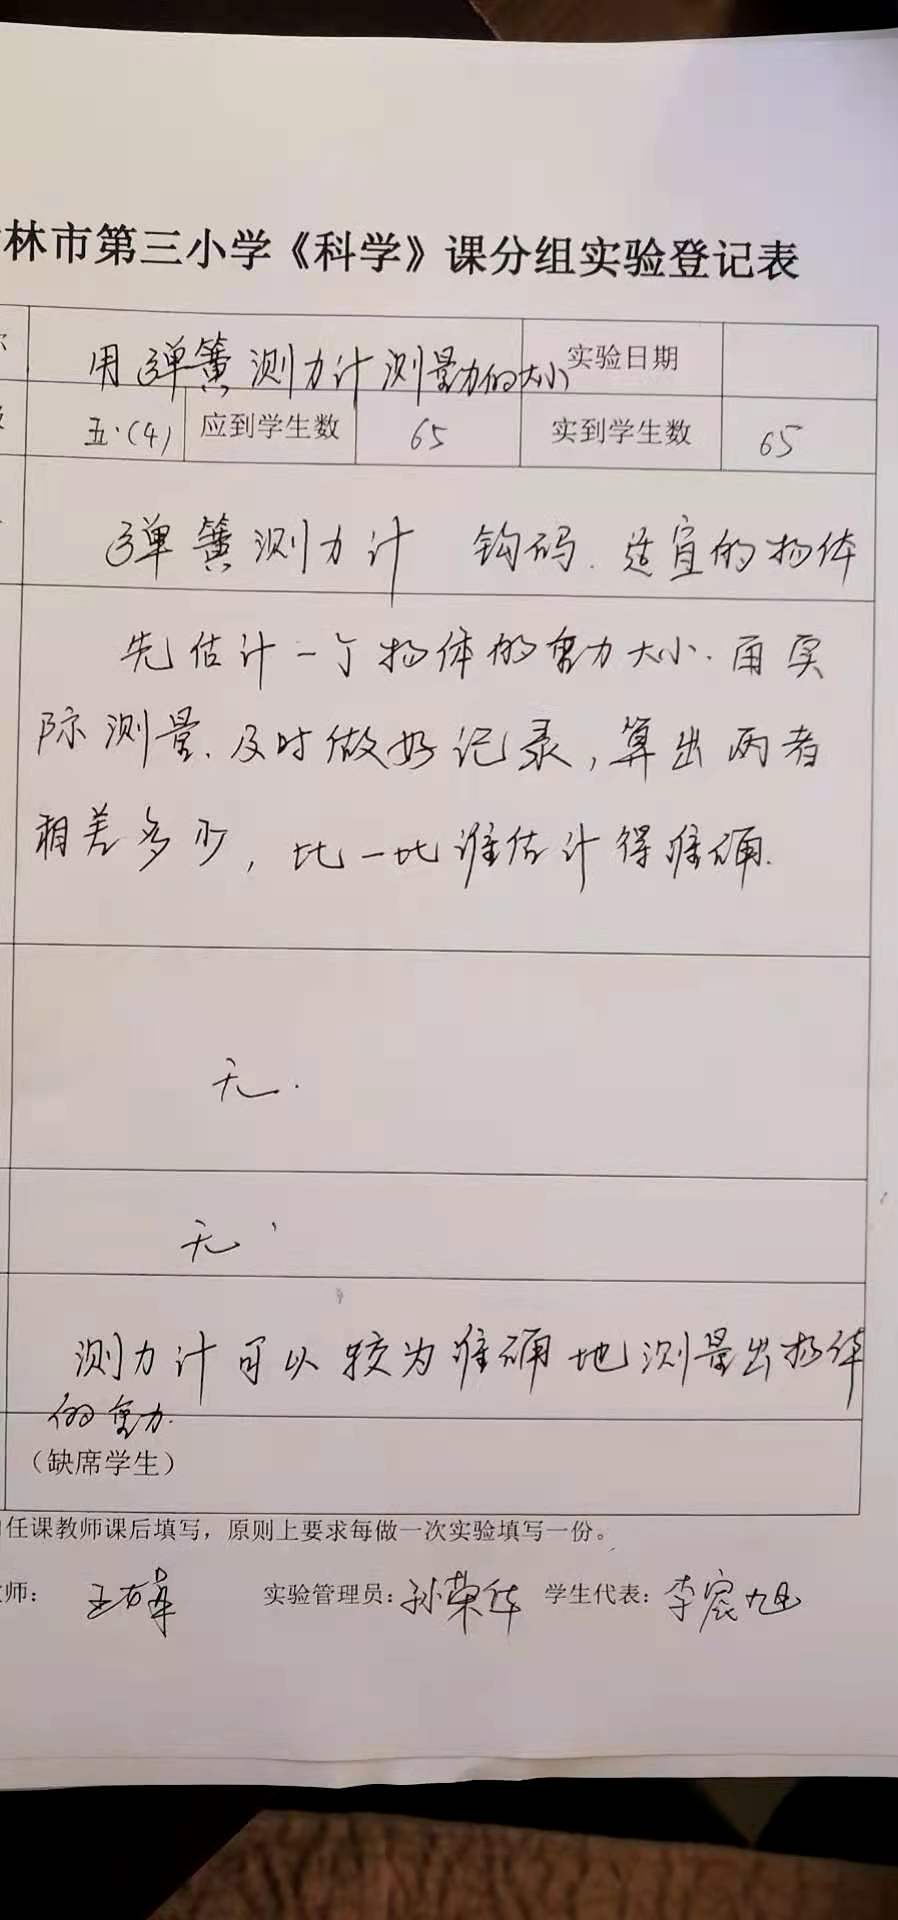 林市第三小学《科学》课分组实验登记表
用弹簧测力计测量力的大小 实验日期
五.(4) 应到学生数 65 实到学生数 65
弹簧测力计 钩码.适宜的物体
先估计一个物体的重力大小.再实
际测量.及时做好记录,算出两者
相差多少,比一比谁估计得准确.
无.
无.
测力计可以较为准确地测量出物体
的重力.
(缺席学生)
任课教师课后填写，原则上要求每做一次实验填写一份。
师: 实验管理员: 孙荣华 学生代表: 李宸旭